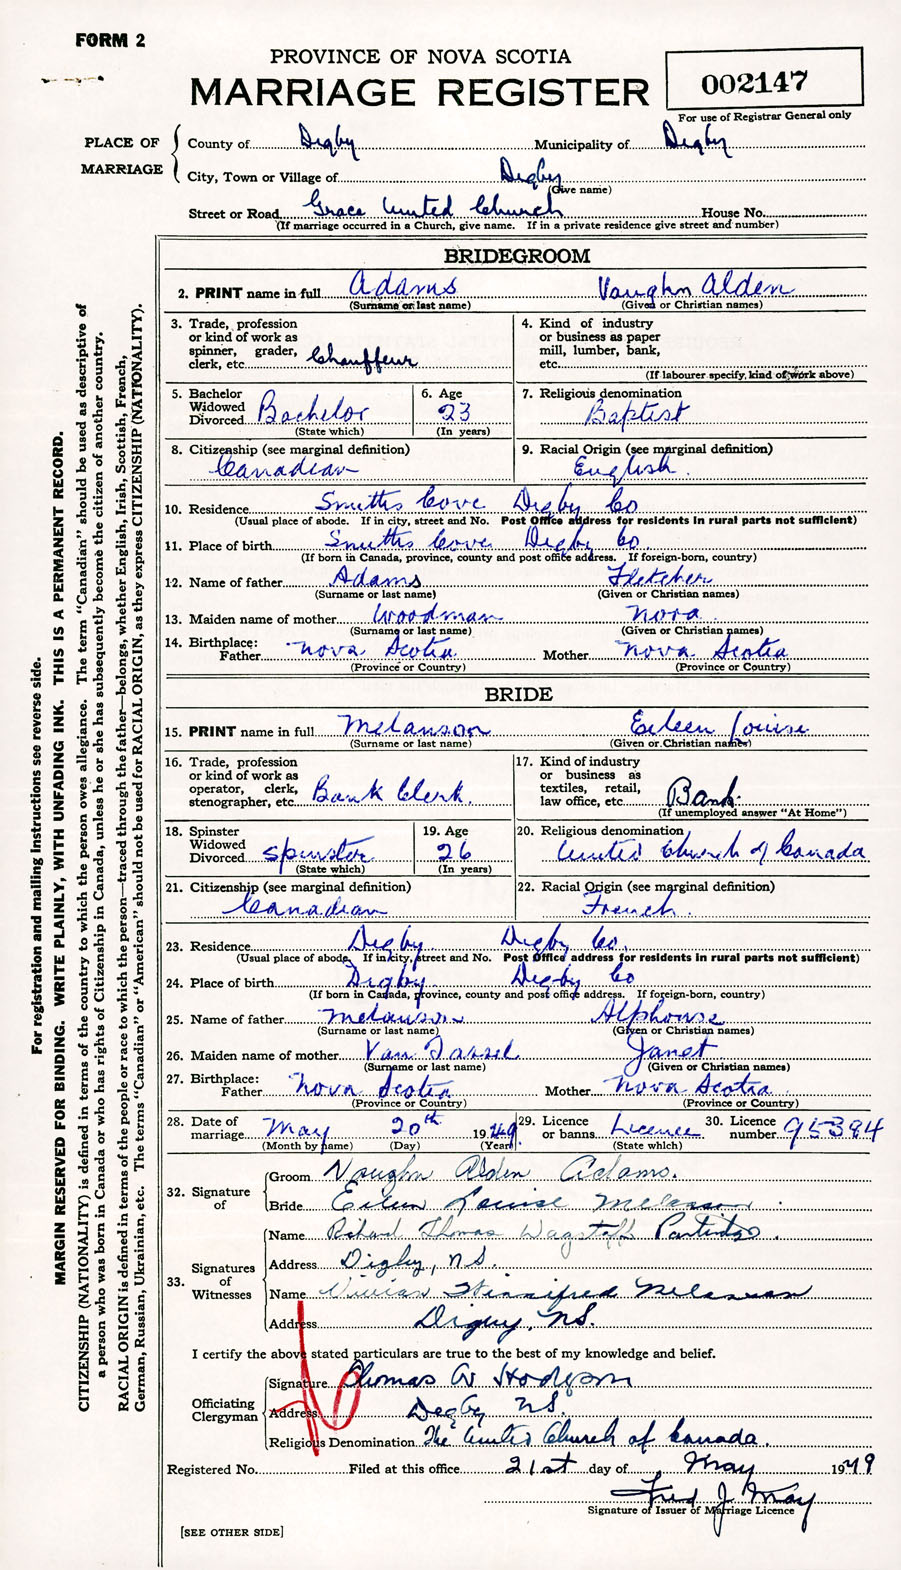 FORM 2
PROVINCE OF NOVA SCOTIA
MARRIAGE REGISTER
002147
For use of Registrar General only
PLACE OF MARRIAGE
County of Digby Municipality of Digby
City, Town or Village of Digby
(Give name)
Street or Road Grace United Church House No.
(If marriage occurred in a Church, give name. If in a private residence give street and number)
BRIDEGROOM
2. PRINT name in full Adams Vaughn Alden
(Surname or last name) (Given or Christian names)
3. Trade, profession or kind of work as spinner, grader, clerk, etc. Chauffeur
4. Kind of industry or business as paper mill, lumber, bank, etc.
(If labourer specify kind of work above)
5. Bachelor Widowed Divorced Bachelor
(State which)
6. Age 23
(In years)
7. Religious denomination
Baptist
8. Citizenship (see marginal definition)
Canadian
9. Racial Origin (see marginal definition)
English.
10. Residence Smiths Cove Digby Co
(Usual place of abode. If in city, street and No. Post Office address for residents in rural parts not sufficient)
11. Place of birth Smiths Cove Digby Co.
(If born in Canada, province, county and post office address. If foreign-born, country)
12. Name of father Adams Fletcher
(Surname or last name) (Given or Christian names)
13. Maiden name of mother Woodman Nora.
(Surname or last name) (Given or Christian names)
14. Birthplace: Father Nova Scotia Mother Nova Scotia
(Province or Country) (Province or Country)
BRIDE
15. PRINT name in full Melanson Eileen Louise
(Surname or last name) (Given or Christian names)
16. Trade, profession or kind of work as operator, clerk, stenographer, etc. Bank Clerk.
17. Kind of industry or business as textiles, retail, law office, etc. Bank.
(If unemployed answer "At Home")
18. Spinster Widowed Divorced Spinster
(State which)
19. Age 26
(In years)
20. Religious denomination
United Church of Canada
21. Citizenship (see marginal definition)
Canadian
22. Racial Origin (see marginal definition)
French.
23. Residence Digby Digby Co.
(Usual place of abode. If in city, street and No. Post Office address for residents in rural parts not sufficient)
24. Place of birth Digby Digby Co
(If born in Canada, province, county and post office address. If foreign-born, country)
25. Name of father Melanson Alphonse
(Surname or last name) (Given or Christian names)
26. Maiden name of mother Van Tassel Janet
(Surname or last name) (Given or Christian names)
27. Birthplace: Father Nova Scotia Mother Nova Scotia
(Province or Country) (Province or Country)
28. Date of marriage May 20th 1949
(Month by name) (Day) (Year)
29. Licence or banns Licence
(State which)
30. Licence number 95384
32. Signature of
Groom Vaughn Alden Adams.
Bride Eileen Louise Melanson
33. Signatures of Witnesses
Name Richard Thomas Wagstaff Partridge.
Address Digby, N.S.
Name Vivian Winnifred Melanson
Address Digby, N.S.
I certify the above stated particulars are true to the best of my knowledge and belief.
Officiating Clergyman
Signature Thomas W Hodgson
Address Digby N.S.
Religious Denomination The United Church of Canada.
Registered No. Filed at this office 21st day of May 1949
Fred J. May
Signature of Issuer of Marriage Licence
[SEE OTHER SIDE]
For registration and mailing instructions see reverse side.
MARGIN RESERVED FOR BINDING. WRITE PLAINLY, WITH UNFADING INK. THIS IS A PERMANENT RECORD.
CITIZENSHIP (NATIONALITY) is defined in terms of the country to which the person owes allegiance. The term "Canadian" should be used as descriptive of
a person who was born in Canada or who has rights of Citizenship in Canada, unless he or she has subsequently become the citizen of another country.
RACIAL ORIGIN is defined in terms of the people or race to which the person—traced through the father—belongs, whether English, Irish, Scottish, French,
German, Russian, Ukrainian, etc. The terms "Canadian" or "American" should not be used for RACIAL ORIGIN, as they express CITIZENSHIP (NATIONALITY).